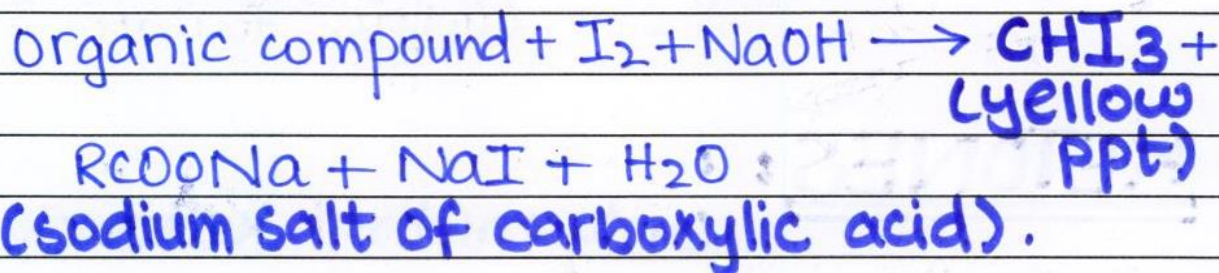 organic compound + I2 + NaOH → CHI3 +
(yellow
RCOONa + NaI + H2O ppt)
(sodium salt of carboxylic acid).